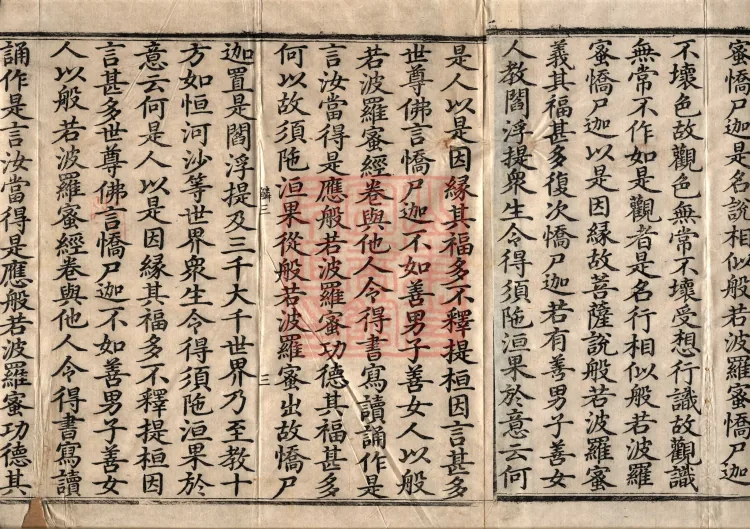 蜜憍尸迦是名說相似般若波羅蜜憍尸迦
不壞色故觀色無常不壞受想行識故觀識
無常不作如是觀者是名行相似般若波羅
蜜憍尸迦以是因緣故菩薩說般若波羅蜜
義其福甚多復次憍尸迦若有善男子善女
人教閻浮提衆生令得須陁洹果於意云何
是人以是因緣其福多不釋提桓因言甚多
世尊佛言憍尸迦不如善男子善女人以般
若波羅蜜經卷與他人令得書寫讀誦作是
言汝當得是應般若波羅蜜功德其福甚多
何以故須陁洹果從般若波羅蜜出故憍尸
鱗三 三
迦置是閻浮提及三千大千世界乃至教十
方如恒河沙等世界衆生令得須陁洹果於
意云何是人以是因緣其福多不釋提桓因
言甚多世尊佛言憍尸迦不如善男子善女
人以般若波羅蜜經卷與他人令得書寫讀
誦作是言汝當得是應般若波羅蜜功德其